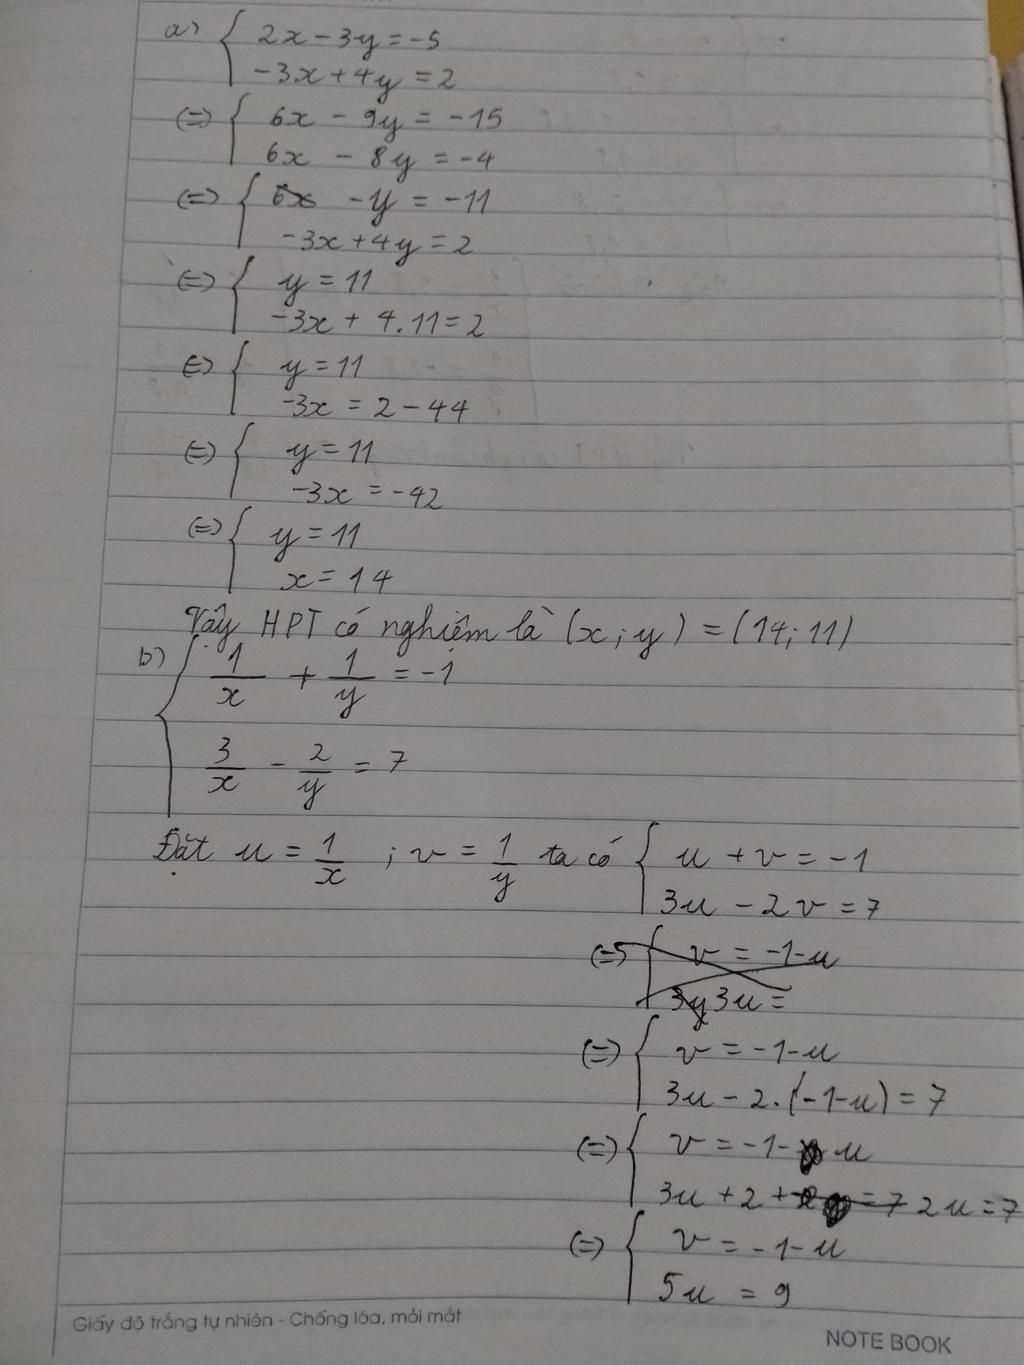 a) { 2x - 3y = -5
-3x + 4y = 2
(=) { 6x - 9y = -15
6x - 8y = -4
(=) { -y = -11
-3x + 4y = 2
(=) { y = 11
-3x + 4.11 = 2
(=) { y = 11
-3x = 2 - 44
(=) { y = 11
-3x = -42
(=) { y = 11
x = 14
Vậy HPT có nghiệm là (x; y) = (14; 11)
b) { 1/x + 1/y = -1
3/x - 2/y = 7
Đặt u = 1/x ; v = 1/y ta có { u + v = -1
3u - 2v = 7
(=) { v = -1-u
3y3u =
(=) { v = -1-u
3u - 2.(-1-u) = 7
(=) { v = -1- u
3u + 2 + = 7 2u = 7
(=) { v = -1-u
5u = 9
Giấy độ trắng tự nhiên - Chống lóa, mỏi mắt
NOTE BOOK